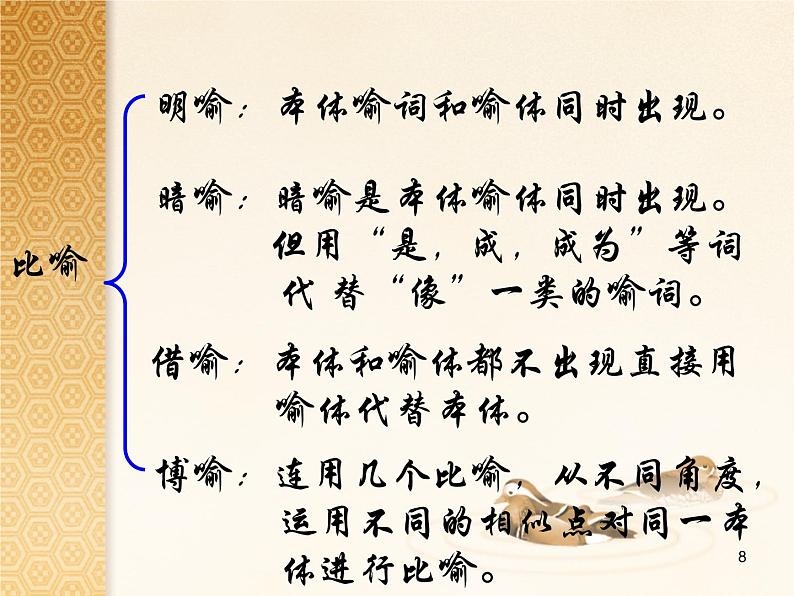 明喻：本体喻词和喻体同时出现。
暗喻：暗喻是本体喻体同时出现。
但用“是，成，成为”等词
代 替“像”一类的喻词。
比喻
借喻：本体和喻体都不出现直接用
喻体代替本体。
博喻：连用几个比喻，从不同角度，
运用不同的相似点对同一本
体进行比喻。
8